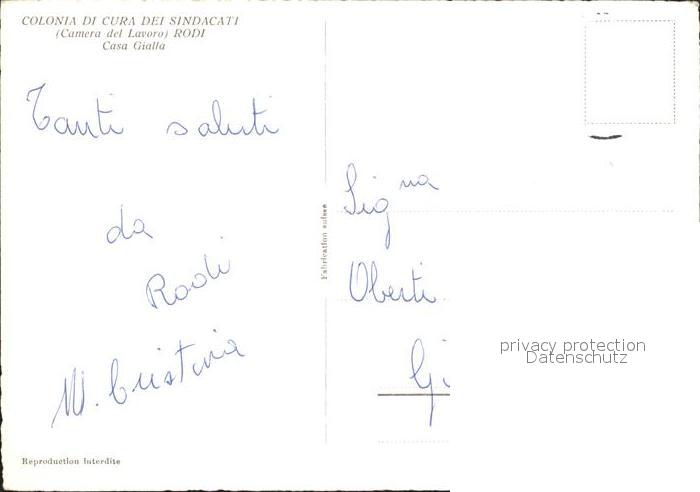 COLONIA DI CURA DEI SINDACATI
(Camera del Lavoro) RODI
Casa Gialla
Tanti saluti
da
Rodi
M. Cristina
Reproduction interdite
Fabrication suisse
Sig na
Oberti
Gi
privacy protection
Datenschutz